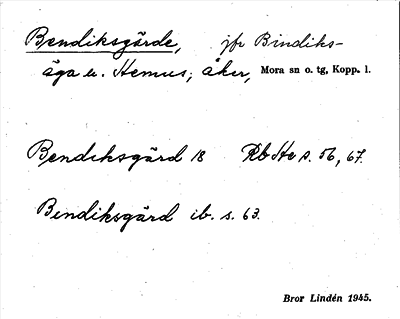 Bendiksgärde, jfr Bindiks-
äga u. Hemus; åker, Mora sn o. tg, Kopp. l.
Bendiksgärd 18 Rb He s. 56, 67.
Bendiksgärd ib. s. 63.
Bror Lindén 1945.